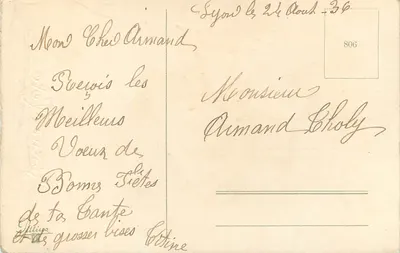 Lyon le 24 Aout - 36
806
Mon Cher Armand
Reçois les
Meilleurs
Voeux de
Bonne Fêtes
de ta Tante
et de grosses bises Titine
Monsieur
Armand Choly